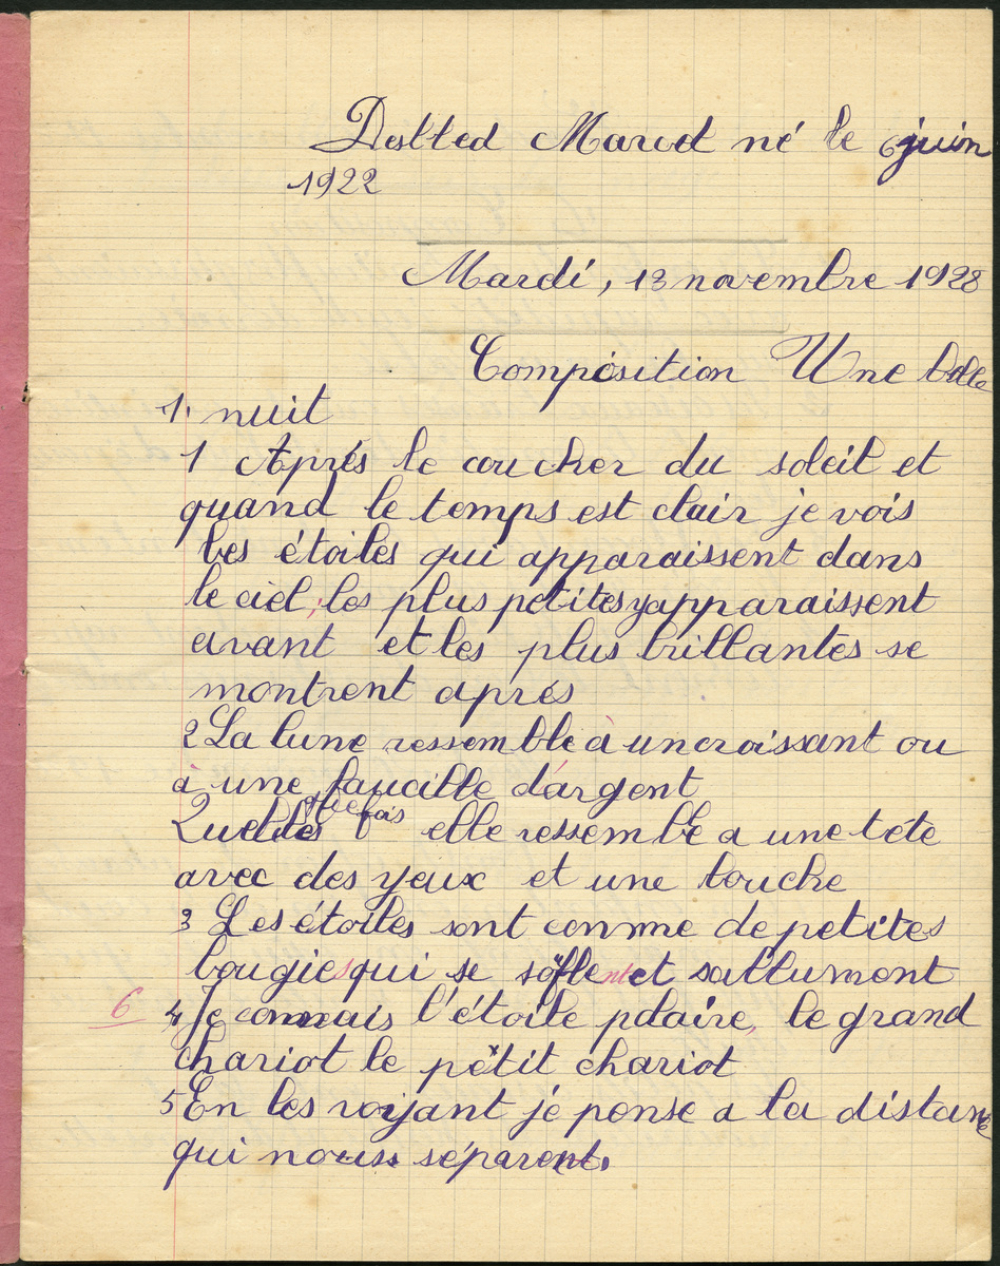 né le 6 juin
1922
Mardi, 13 novembre 1928
Composition Une belle
1. nuit
1 Aprés le coucher du soleil et
quand le temps est clair je vois
les étoiles qui apparaissent dans
le ciel; les plus petites yapparaissent
avant et les plus brillantes se
montrent aprés
2 La lune ressemble à uncroissant ou
à une faucille d'argent
Quelquefois elle ressemble a une téte
avec des yeux et une bouche
3 Les étoiles sont comme de petites
bougies qui se soflent et sallument
6 4 Je connais l'étoile polaire, le grand
chariot le petit chariot
5 En les voyant je pense a la distance
qui nous séparent.